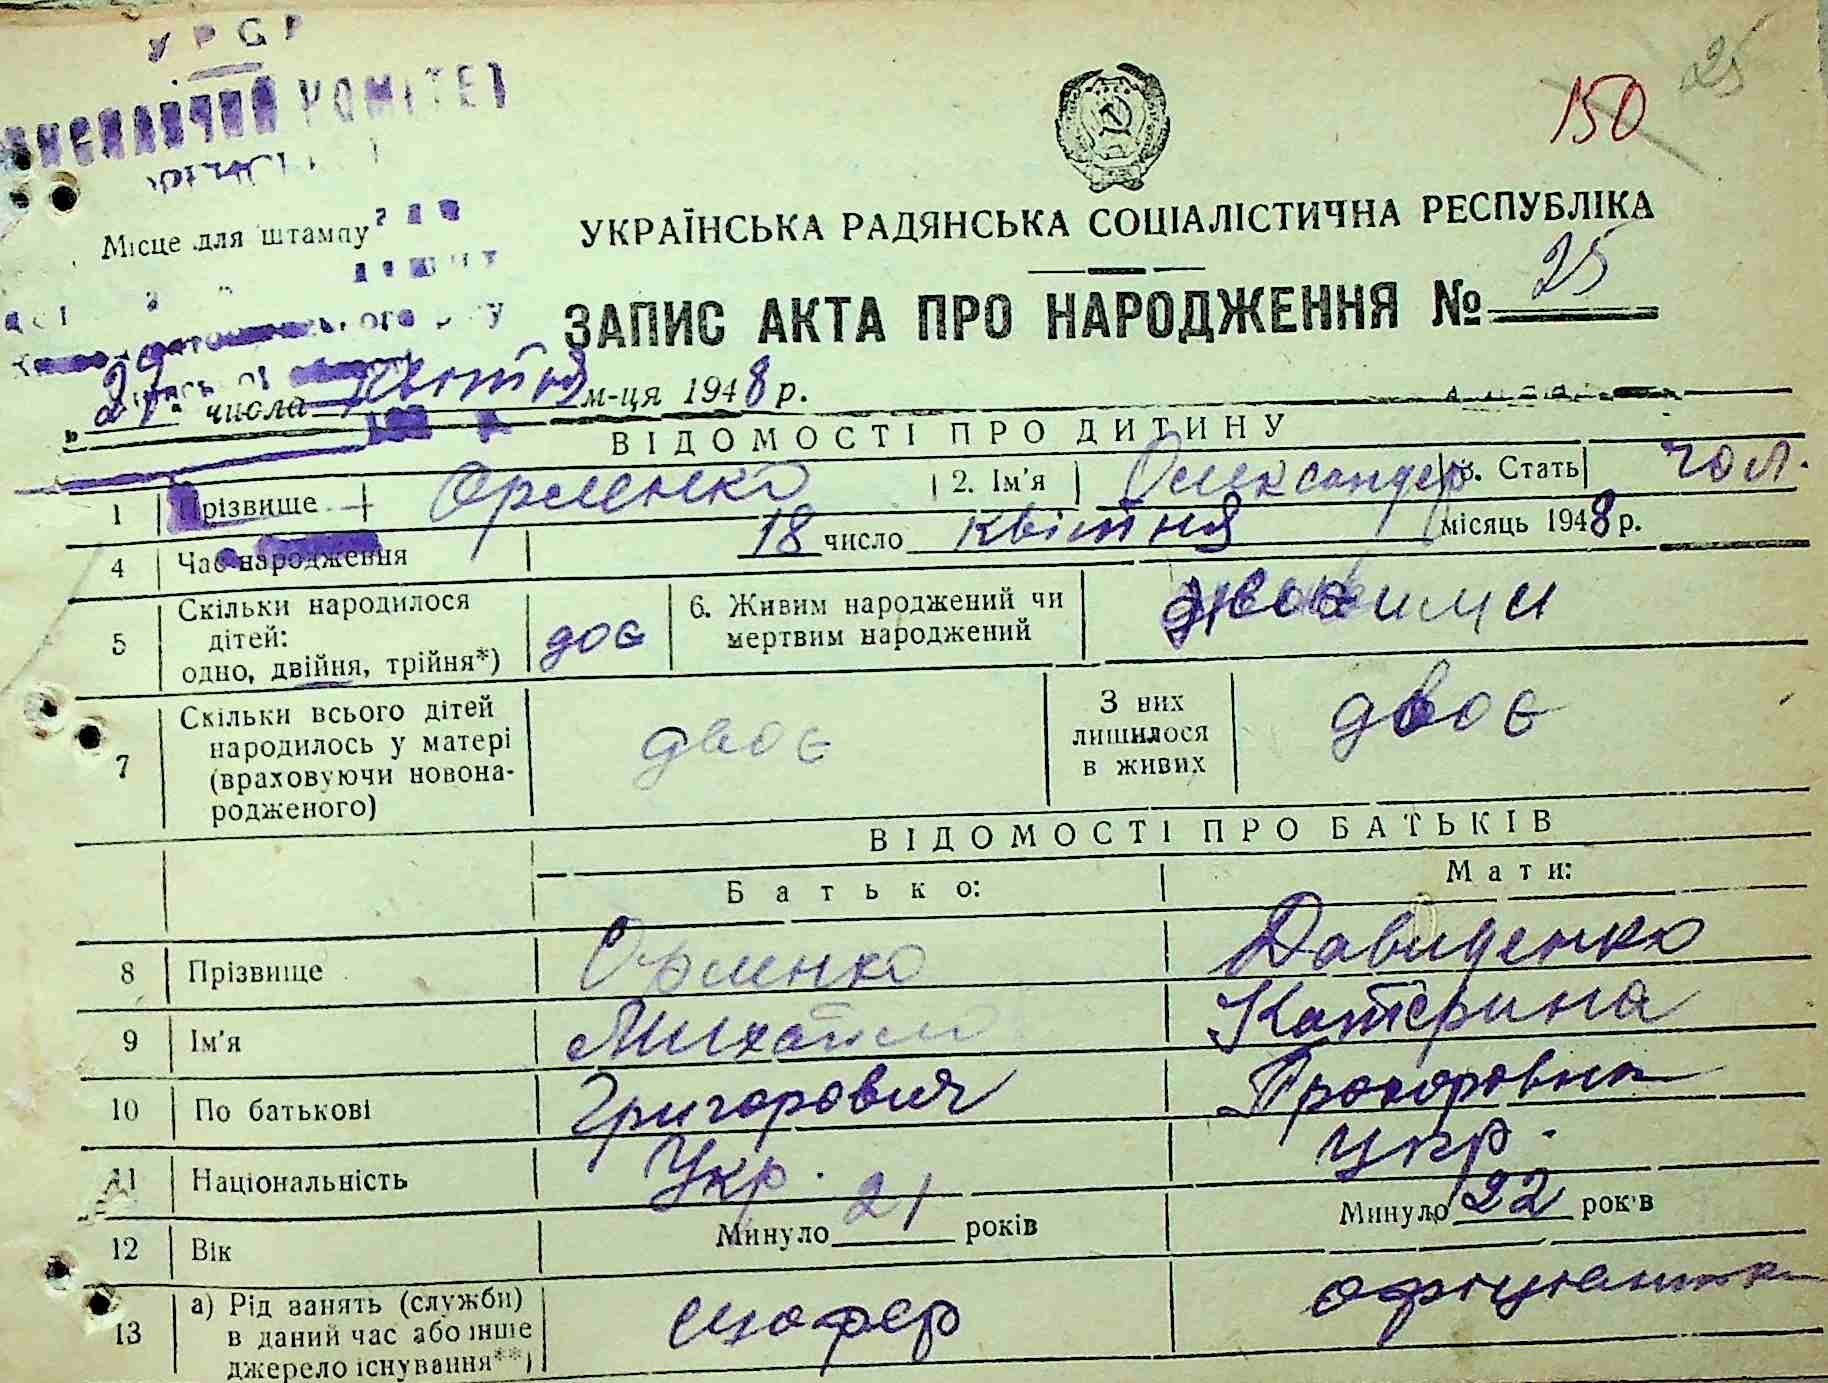 УРСР
КОМІТЕТ
25
150
Місце для штампу
УКРАЇНСЬКА РАДЯНСЬКА СОЦІАЛІСТИЧНА РЕСПУБЛІКА
ЗАПИС АКТА ПРО НАРОДЖЕННЯ № 25
числа м-ця 1948 р.
ВІДОМОСТІ ПРО ДИТИНУ
1 Прізвище Орленко 2. Ім'я Олександер 3. Стать чол.
4 Час народження 18 число квітня місяць 1948 р.
5 Скільки народилося дітей: одно, двійня, трійня*) доє 6. Живим народжений чи мертвим народжений
7 Скільки всього дітей народилось у матері (враховуючи новонародженого) двоє З них лишилося в живих двоє
ВІДОМОСТІ ПРО БАТЬКІВ
Батько: Мати:
8 Прізвище Орленко Давиденко
9 Ім'я Михайло Катерина
10 По батькові Григорович Прохоровна
11 Національність Укр. укр.
12 Вік Минуло 21 років Минуло 22 років
13 а) Рід занять (служби) в даний час або інше джерело існування**) шофер офіціантка